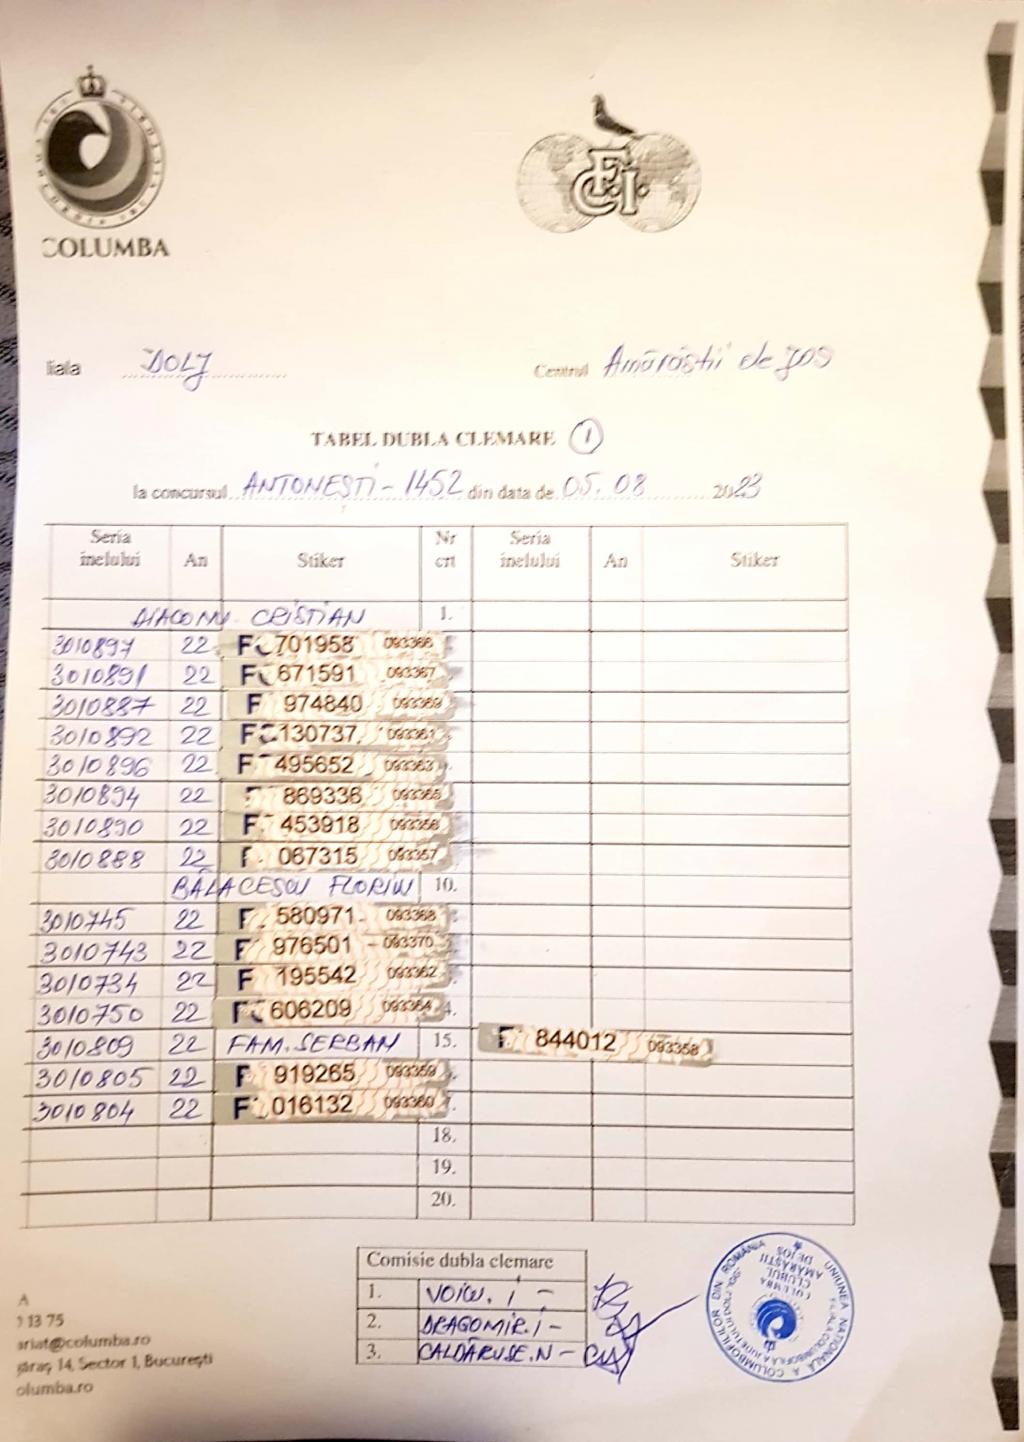 COLUMBA
F.C.I.
liala DOLJ Centrul Amărăștii de Jos
TABEL DUBLA CLEMARE 1
la concursul ANTONEȘTI - 1452 din data de 05.08 2023
Seria inelului An Stiker Nr crt Seria inelului An Stiker
DIACONU CRISTIAN 1.
3010897 22 F 701958 093366
3010891 22 F 671591 093367
3010887 22 F 974840 093369
3010892 22 F 130737 093361
3010896 22 F 495652 093363
3010894 22 F 869336 093365
3010890 22 F 453918 093356
3010888 22 F 067315 093357
BĂLACESCU FLORIN 10.
3010745 22 F 580971 093368
3010743 22 F 976501 093370
3010734 22 F 195542 093362
3010750 22 F 606209 093364
3010809 22 FAM. SERBAN 15. F 844012 093358
3010805 22 F 919265 093359
3010804 22 F 016132 093360
18.
19.
20.
Comisie dubla clemare
1. VOICU. I -
2. DRAGOMIR. I -
3. CALDĂRUSE. N -
A
13 75
ariat@columba.ro
găraș 14, Sector 1, București
olumba.ro
UNIUNEA NAȚIONALĂ A COLUMBOFILILOR DIN ROMÂNIA
COLUMBA
CLUBUL
AMĂRĂȘTII
DE JOS